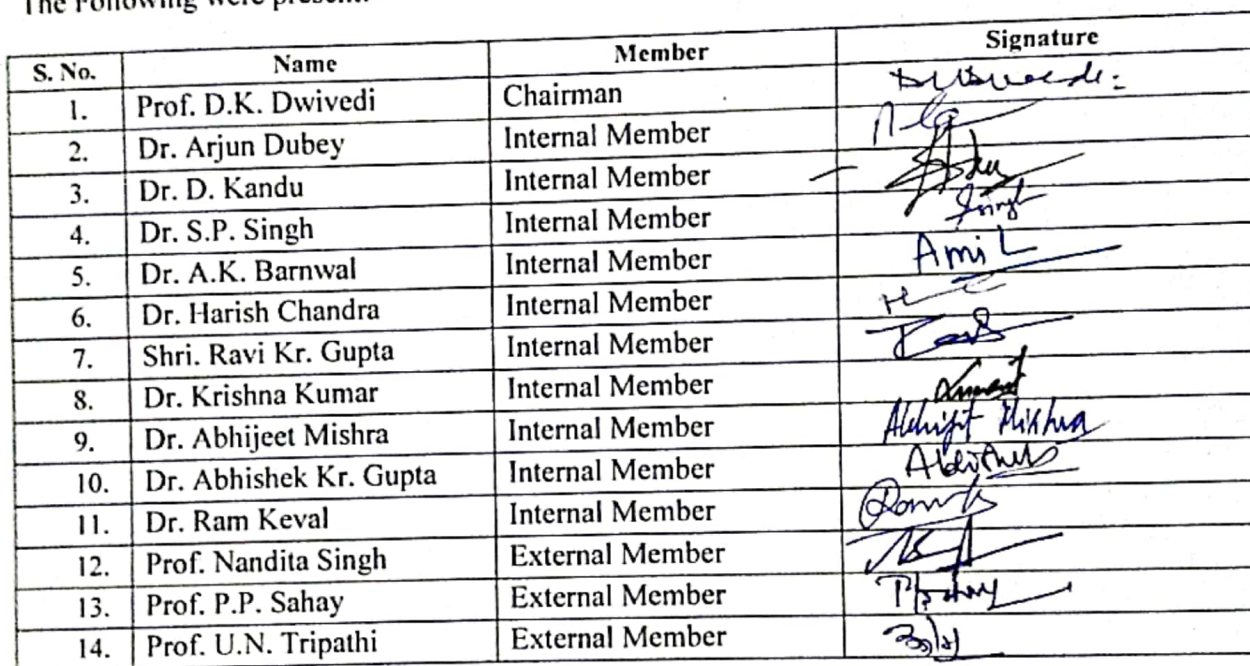 The Following were present:
S. No. Name Member Signature
1. Prof. D.K. Dwivedi Chairman
2. Dr. Arjun Dubey Internal Member
3. Dr. D. Kandu Internal Member
4. Dr. S.P. Singh Internal Member Singh
5. Dr. A.K. Barnwal Internal Member
6. Dr. Harish Chandra Internal Member
7. Shri. Ravi Kr. Gupta Internal Member
8. Dr. Krishna Kumar Internal Member
9. Dr. Abhijeet Mishra Internal Member Abhijit Mishra
10. Dr. Abhishek Kr. Gupta Internal Member
11. Dr. Ram Keval Internal Member
12. Prof. Nandita Singh External Member
13. Prof. P.P. Sahay External Member
14. Prof. U.N. Tripathi External Member